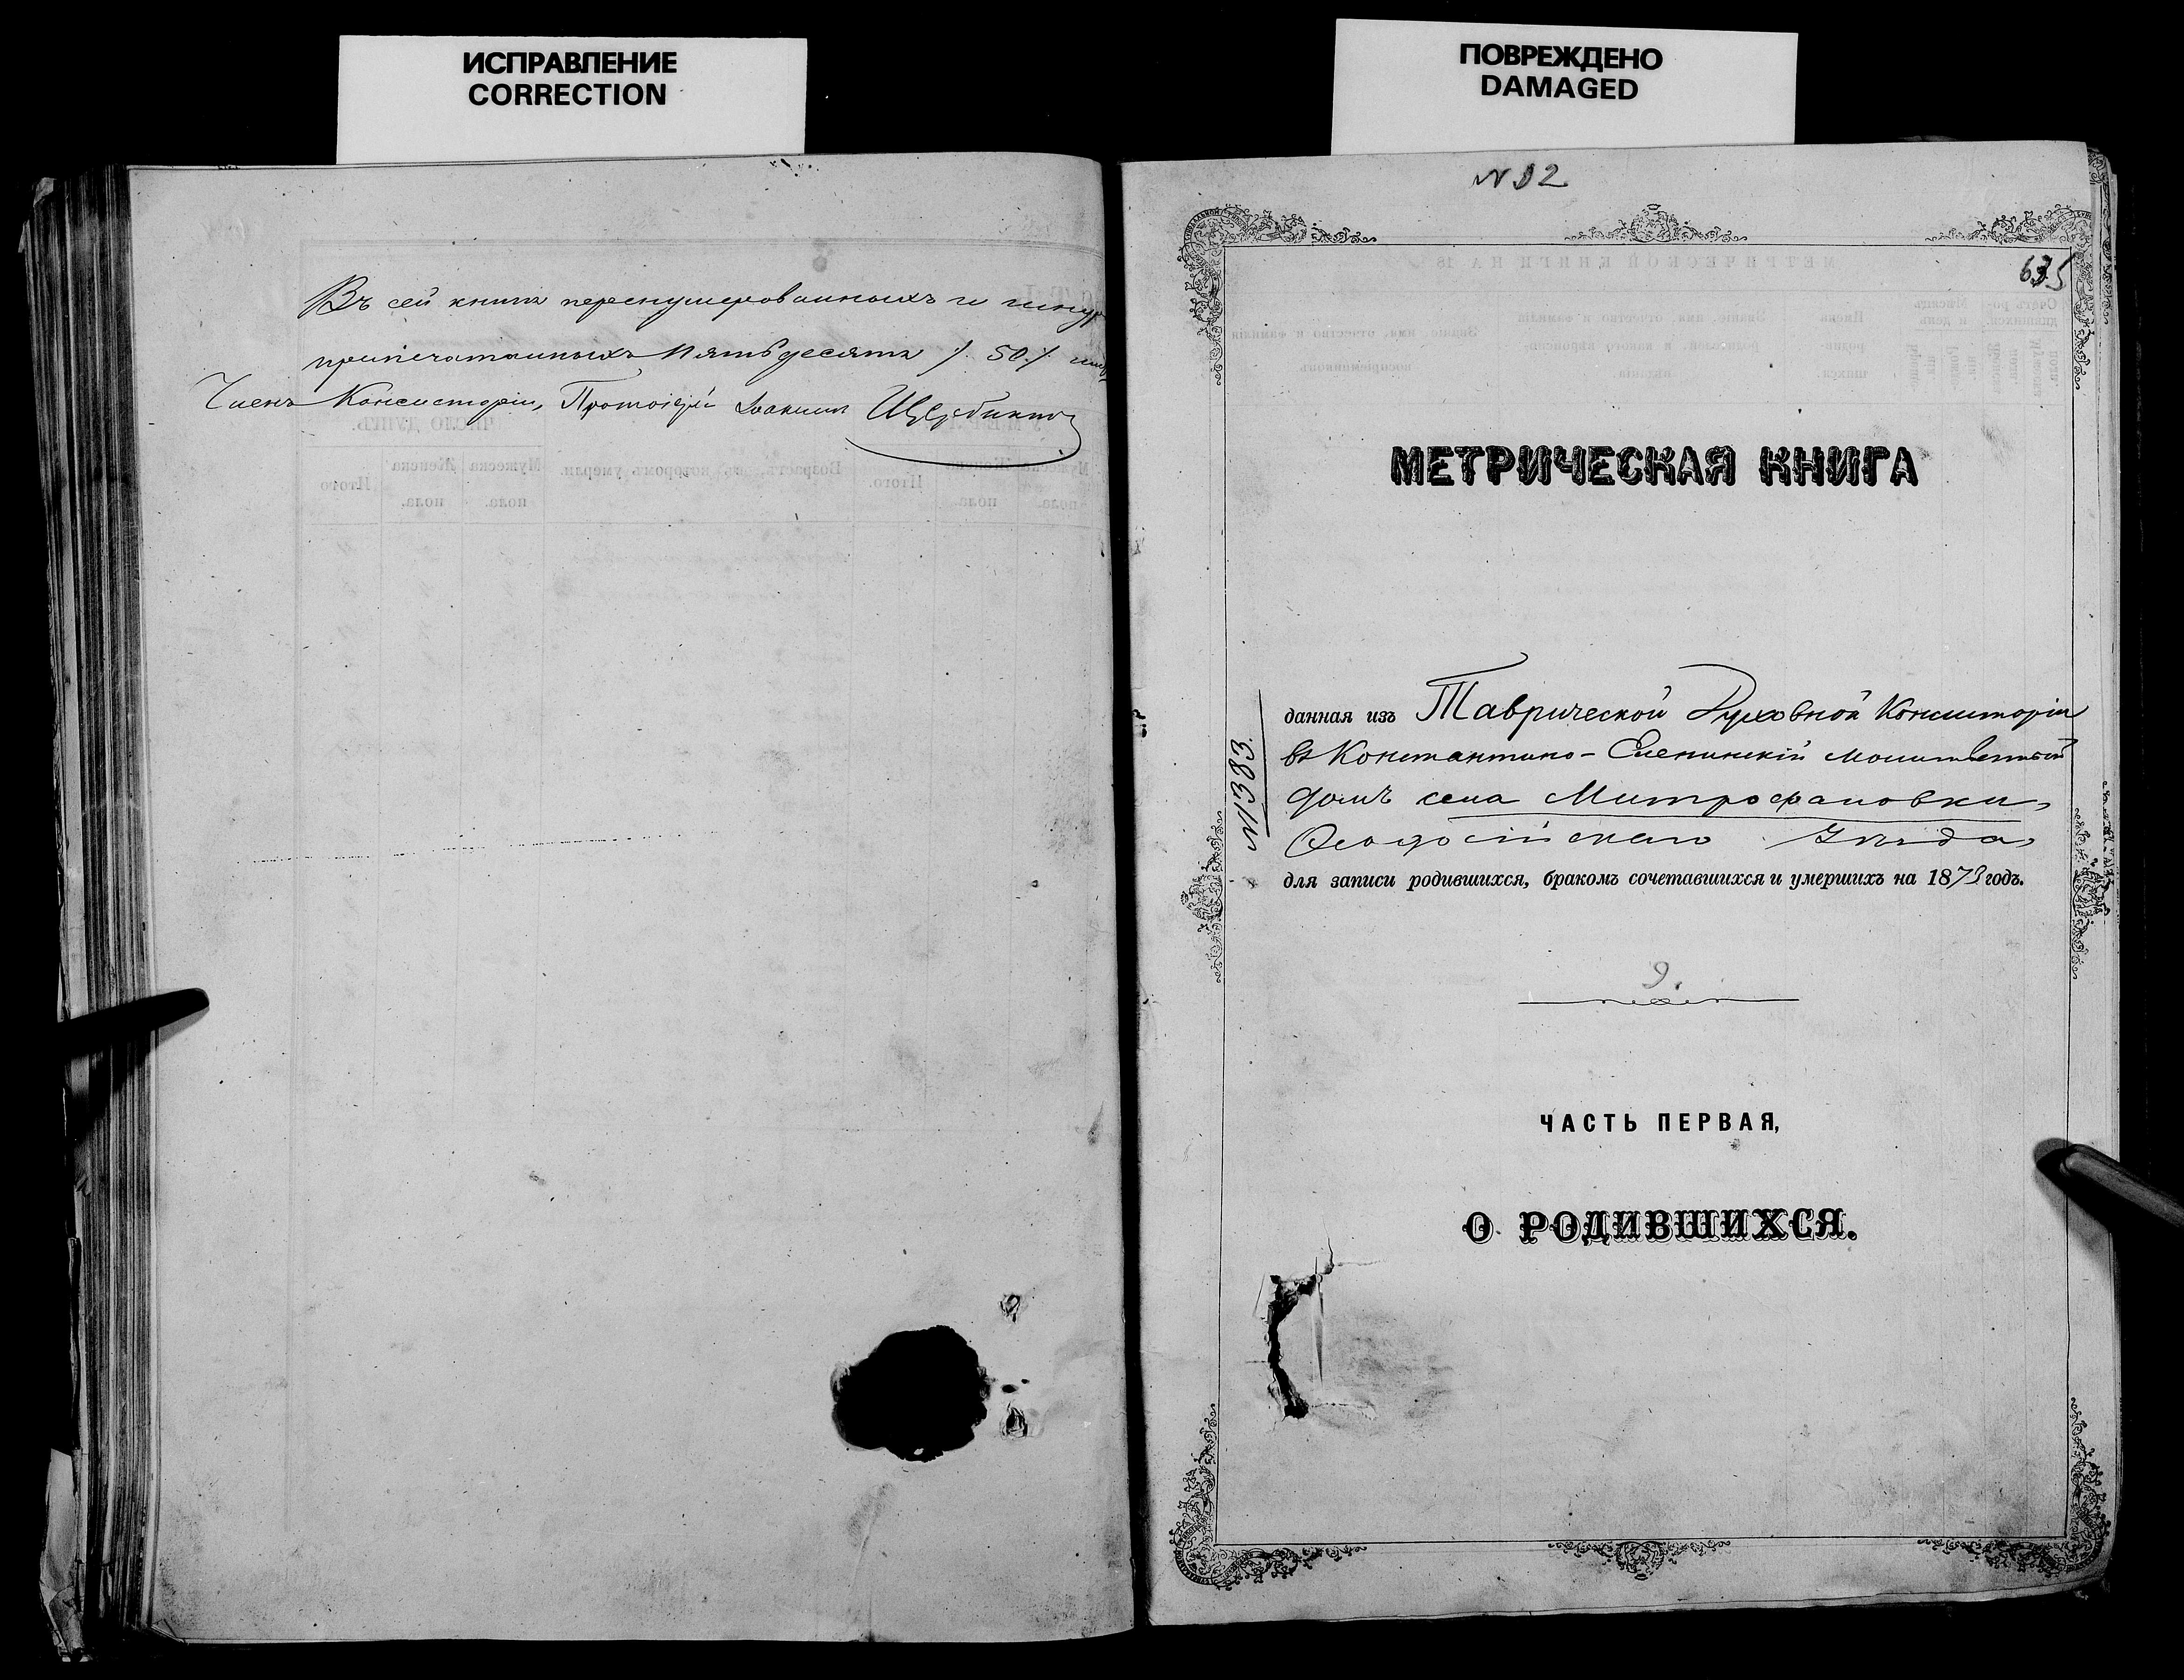 ИСПРАВЛЕНИЕ
CORRECTION
Въ сей книгѣ перенумерованныхъ и шнур
припечатанныхъ пятьдесятъ /. 50 /.
Членъ Консисторіи, Протоіерей Іоакимъ
ПОВРЕЖДЕНО
DAMAGED
635
МЕТРИЧЕСКАЯ КНИГА
данная изъ Таврической Духовной Консисторіи
въ Константино-Еленинскій молитвенный
домъ села Митрофановки,
Ѳеодосійскаго Уѣзда,
для записи родившихся, бракомъ сочетавшихся и умершихъ на 1873 годъ.
№ 1383
9.
ЧАСТЬ ПЕРВАЯ,
О РОДИВШИХСЯ.